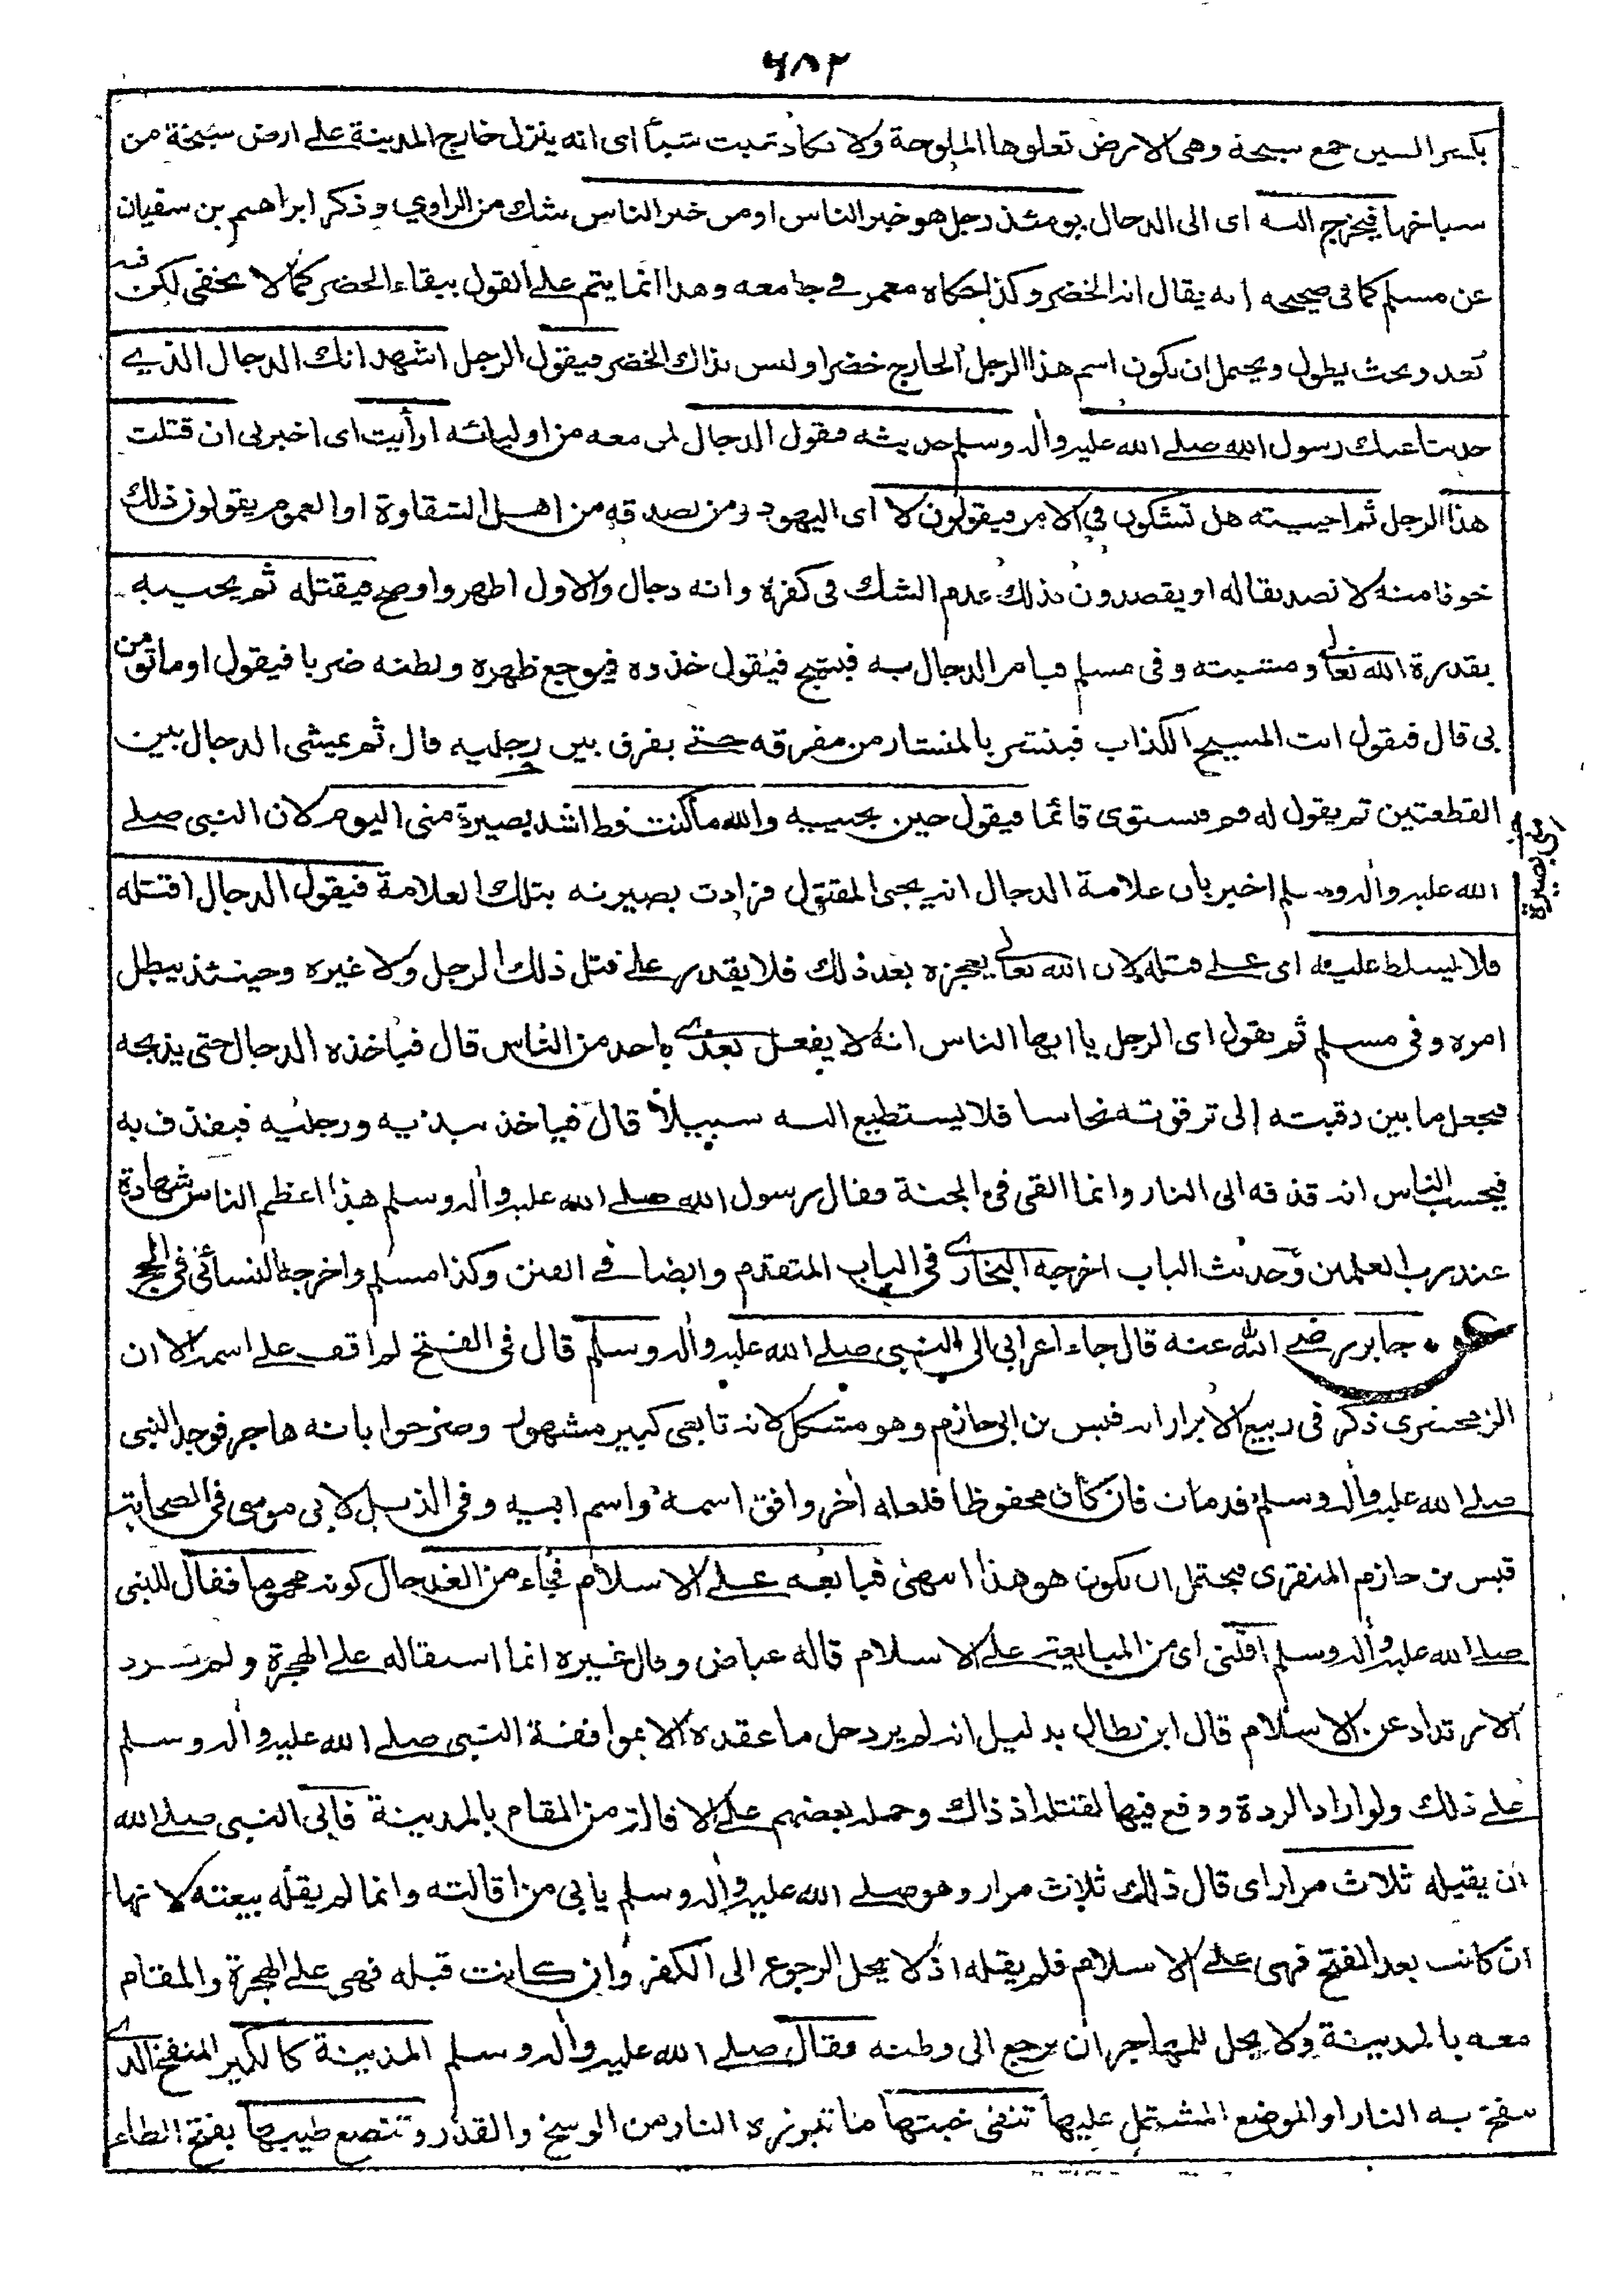 ٦٨٢
بكسر السين جمع سبخة وهى الارض تعلوها الملوحة ولا تكاد تنبت شيأ اى انه ينزل خارج المدينة على ارض سبخة من
سباخها فيخرج اليه اى الى الدجال يومئذ رجل هو خير الناس او من خير الناس شك من الراوي وذكر ابراهيم بن سفيان
عن مسلم كما فى صحيحه انه يقال انه الخضر وكذا حكاه معمر في جامعه وهذا انما يتم على القول ببقاء الخضر كما لا يخفى لكن فيه
بعد وبحث يطول ويحتمل ان يكون اسم هذا الرجل الخارج خضرا وليس بذاك الخضر فيقول الرجل اشهد انك الدجال الذي
حدثنا عنك رسول الله صلى الله عليه وآله وسلم حديثه فيقول الدجال لمن معه من اوليائه ارأيت اى اخبرني ان قتلت
هذا الرجل ثم احييته هل تشكون في الامر فيقولون لا اى اليهود ومن يصدقه من اهل الشقاوة او العموم يقولون ذلك
خوفا منه لا تصديقا له او يقصدون بذلك عدم الشك فى كفره وانه دجال والاول اظهر واوضح فيقتله ثم يحييه
بقدرة الله تعالى ومشيته وفى مسلم فيامر الدجال به فيشبح فيقول خذوه فيوجع ظهره وبطنه ضربا فيقول اوما تؤمن
بى قال فيقول انت المسيح الكذاب فينشر بالمنشار من مفرقه حتى يفرق بين رجليه قال ثم يمشى الدجال بين
القطعتين ثم يقول له قم فيستوى قائما فيقول حين يحييه والله ما كنت قط اشد بصيرة منى اليوم لان النبى صلى
الله عليه وآله وسلم اخبر بان علامة الدجال انه يحيى المقتول فزادت بصيرته بتلك العلامة فيقول الدجال اقتله
فلا يسلط عليه اى على قتله لان الله تعالى يعجزه بعد ذلك فلا يقدر على قتل ذلك الرجل ولا غيره وحينئذ يبطل
امره وفى مسلم ثم يقول اى الرجل يا ايها الناس انه لا يفعل بعدي باحد من الناس قال فياخذه الدجال حتى يذبحه
فيجعل ما بين رقبته إلى ترقوته نحاسا فلا يستطيع اليه سبيلا قال فياخذ بيديه ورجليه فيقذف به
فيحسب الناس انه قذفه الى النار وانما القى فى الجنة فقال رسول الله صلى الله عليه وآله وسلم هذا اعظم الناس شهادة
عند رب العلمين وحديث الباب اخرجه البخاري فى الباب المتقدم وايضا في الفتن وكذا مسلم واخرجه النسائى فى الحج
عن جابر رضي الله عنه قال جاء اعرابي الى النبى صلى الله عليه وآله وسلم قال فى الفتح لم اقف على اسمه الا ان
الزمخشرى ذكر فى ربيع الابرار انه قيس بن ابى حازم وهو مشكل لانه تابعى كبير مشهور وصرحوا بانه هاجر فوجد النبى
صلى الله عليه وآله وسلم قد مات فان كان محفوظا فلعله آخر وافق اسمه واسم ابيه وفى الذيل لابى موسى فى الصحابة
قيس بن حازم المنقرى فيحتمل ان يكون هو هذا انتهى فبايعه على الاسلام فجاء من الغد حال كونه محموما فقال للنبى
صلى الله عليه وآله وسلم اقلنى اى من المبايعة على الاسلام قاله عياض وقال غيره انما استقاله على الهجرة ولم يرد
الارتداد عن الاسلام قال ابن بطال بدليل انه لم يرد حل ما عقده الا بموافقة النبى صلى الله عليه وآله وسلم
على ذلك ولو اراد الردة ووقع فيها لقتله اذ ذاك وحمله بعضهم على الاقالة من المقام بالمدينة فابى النبى صلى الله
ان يقيله ثلاث مرار اى قال ذلك ثلاث مرار وهو صلى الله عليه وآله وسلم يابى من اقالته وانما لم يقله بيعته لانها
ان كانت بعد الفتح فهى على الاسلام فلم يقله اذ لا يحل الرجوع الى الكفر وان كانت قبله فهى على الهجرة والمقام
معه بالمدينة ولا يحل للمهاجر ان يرجع الى وطنه فقال صلى الله عليه وآله وسلم المدينة كالكير المنفخ الذي
ينفخ به النار او الموضع المشتمل عليها تنفى خبثها ما تبرزه النار من الوسخ والقذر وتنصع طيبها بفتح الطاء